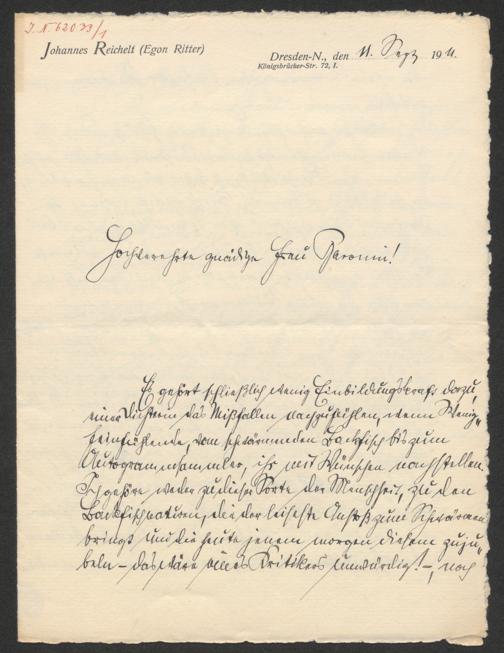 J. N. 62033/1
Johannes Reichelt (Egon Ritter)
Dresden-N., den 11. Sept 1911.
Königsbrücker-Str. 72, I.
Hochverehrte gnädige Frau Baronin!
Es gehört schließlich wenig Einbildungskraft dazu,
einer Dichterin das Mißfallen nachzufühlen, wenn Wenig-
feinfühlende, vom schwärmenden Backfisch bis zum
Autogrammsammler, ihr mit Wünschen nachstellen.
Ich gehöre weder zu dieser Sorte der Menschheit, zu den
Backfischnaturen, die der leiseste Anstoß zum Schwärmen
bringt und die heute jenem morgen diesem zuju-
beln – das wäre eines Kritikers unwürdig! –, noch